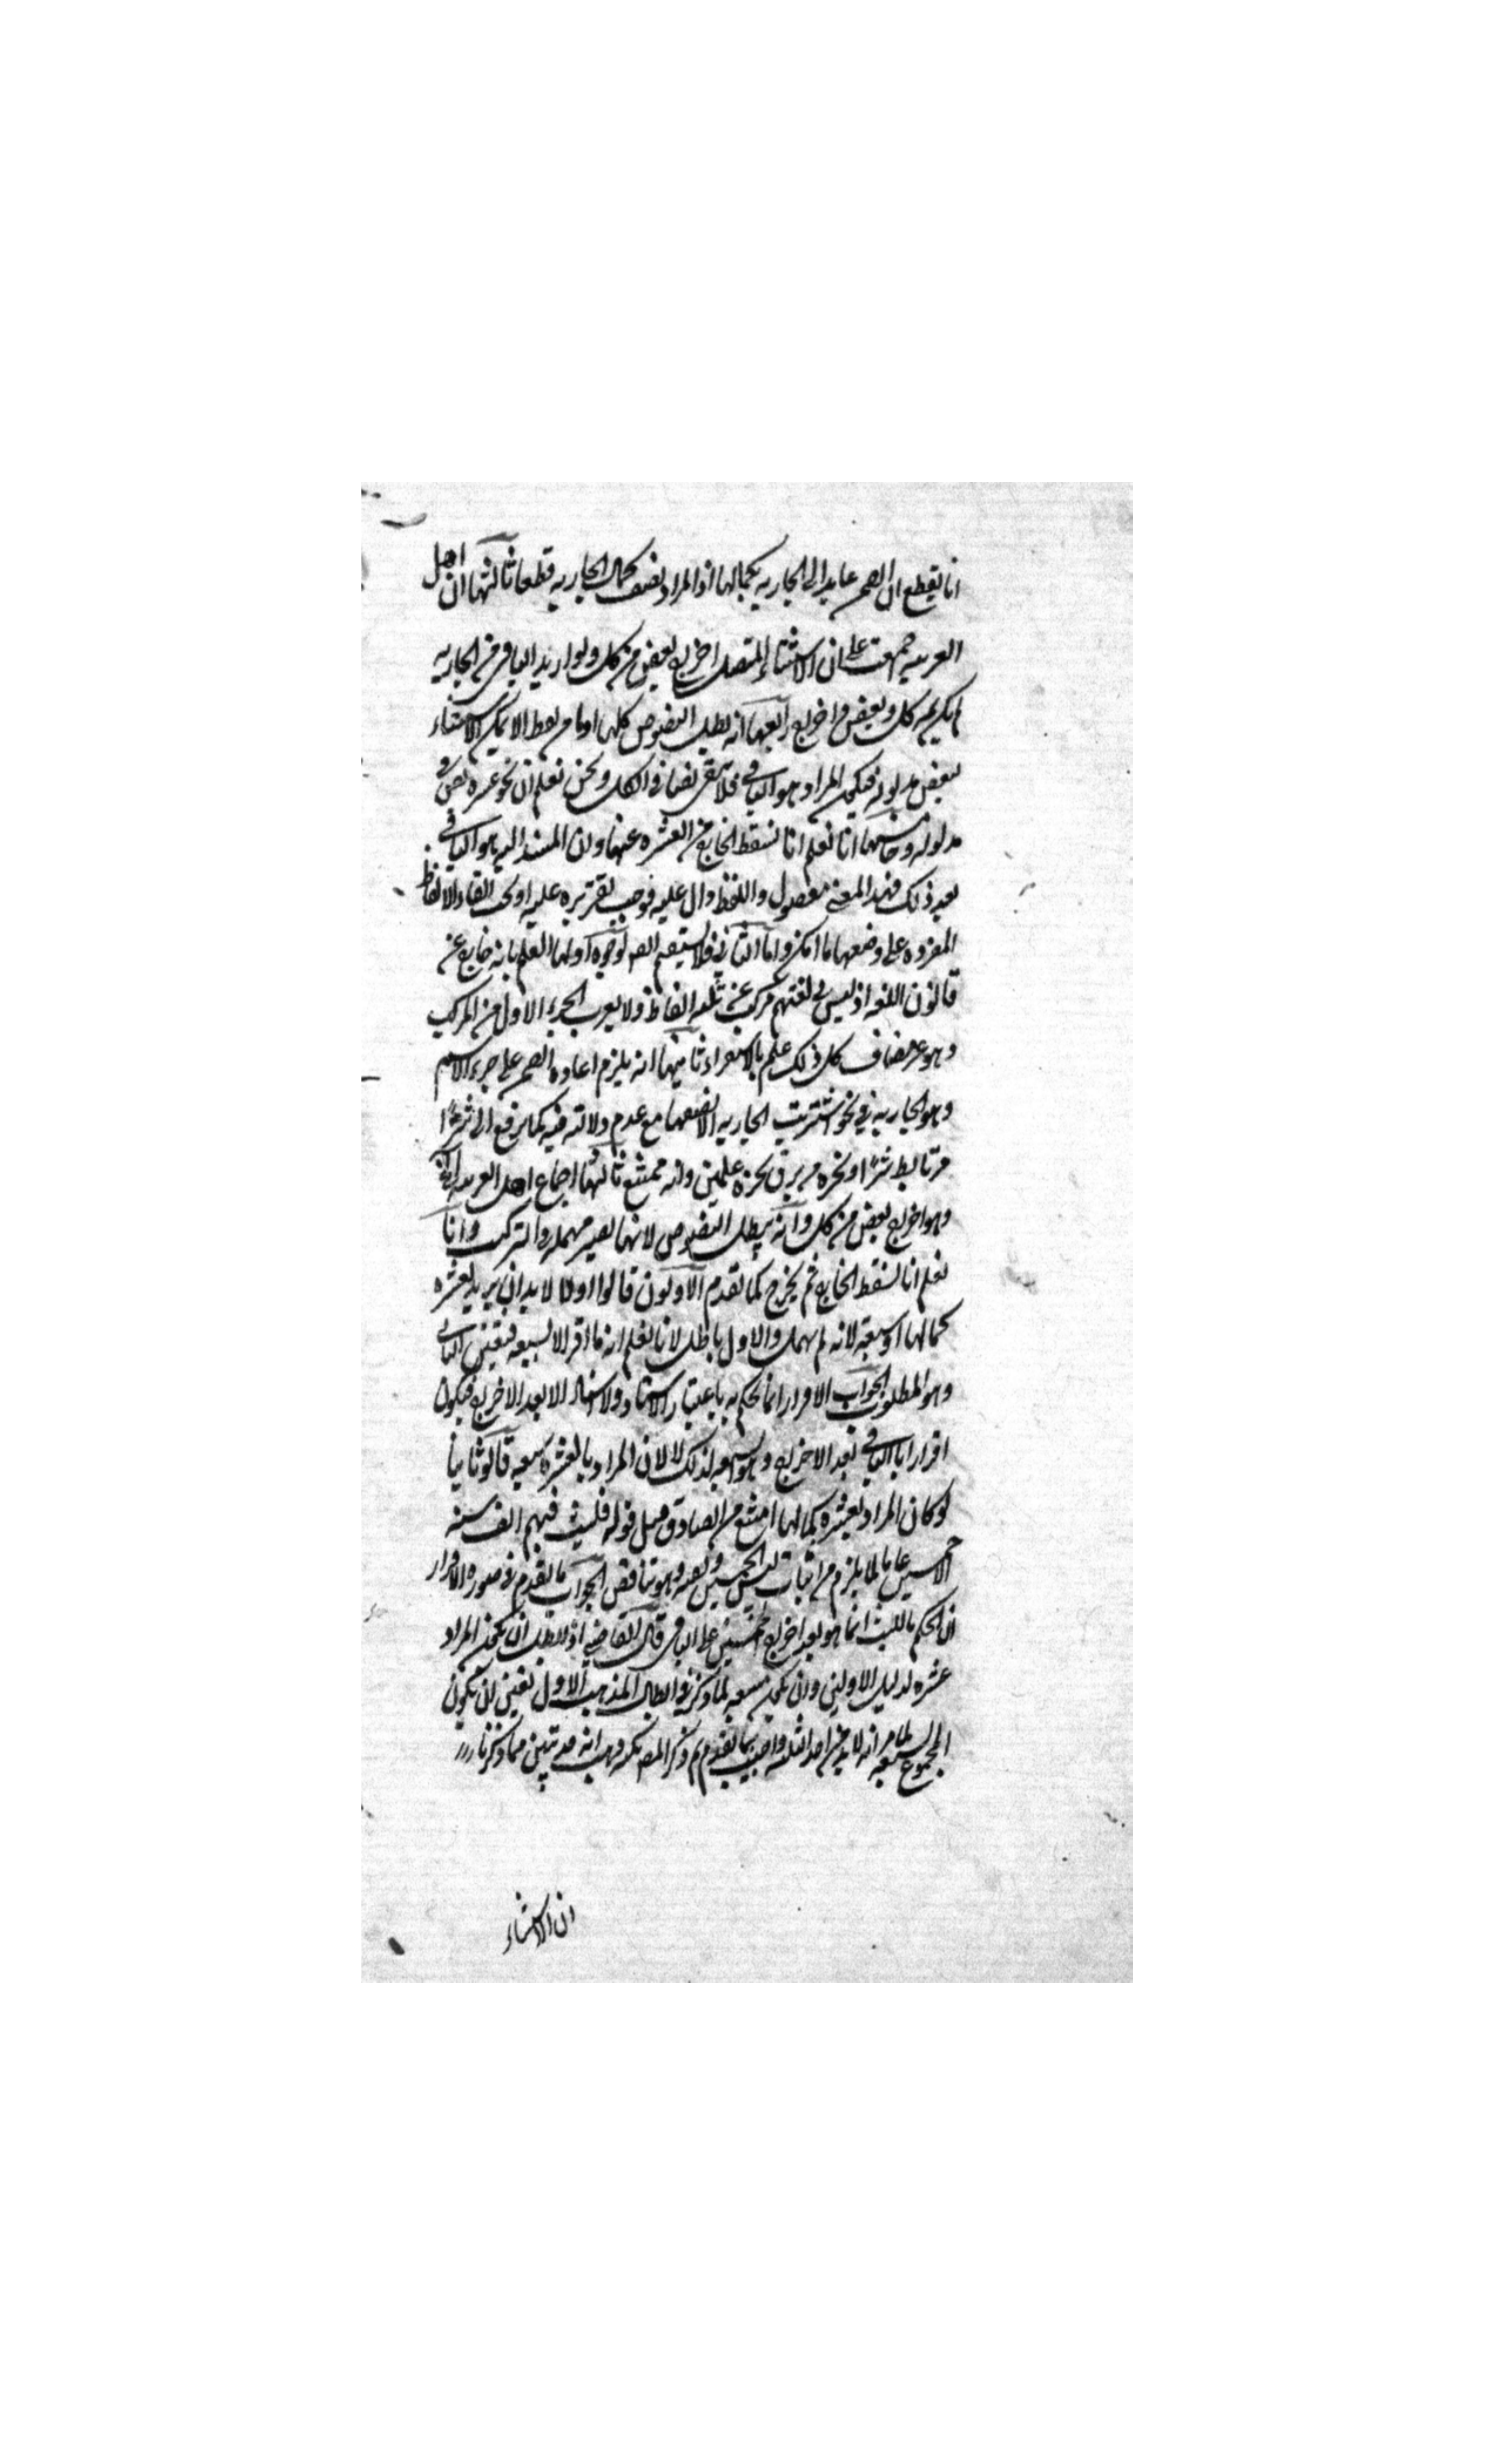 انا نقطع ان الضمير عايد الى الجاريه بكمالها اذ المراد نصف كمال الجاريه قطعا ثالثها ان اهل
العربيه اجمعت على ان الاستثناء المتصل اخراج بعض من كل ولو اريد الباقي من الجاريه
لم يكن ثمه كل وبعض واخراج رابعها انه يبطل النصوص كلها اذ ما من لفظ الا يمكن الاستثناء
لبعض مدلوله فيكون المراد هو الباقي فلا يبقى نصا في الكل ونحن نعلم ان نحو عشره نص في
مدلوله وخامسها انا نعلم انا نسقط الخارج من العشره عنها وان المسند اليه هو الباقي
بعد ذلك فهذا المعنى معصول واللفظ دال عليه فوجب تقريره عليه اولى ابقاء الالفاظ
المفرده على وضعها ما امكن واما الثاني فلا يستقيم لوجوه اولها العلم بانه خارج عن
قانون اللغه اذ ليس في لغتهم مركب عن ثلثه الفاظ ولا يعرب الجزء الاول من المركب
وهو غير مضاف كل ذلك علم بالاستقراء ثانيها انه يلزم اعاده الضمير على جزء الاسم
وهو الجاريه في نحو اشتريت الجاريه الا نصفها مع عدم دلالته فيه كما يرفع الى شرًا
من تابط شرًا او نحره من برق نحره علمين وانه ممتنع ثالثها اجماع اهل العربيه
وهو اخراج بعض من كل وانه يبطل النصوص لانها تصير مهمله والتركيب وانا
نعلم انا نسقط الخارج ثم يخرج كما تقدم الاولون قالوا اولا لا بد ان يريد بعشره
كمالها او سبعه لانه لم يهمل والاول باطل لانا نعلم انه ما اقر الا بسبعه فيتعين الثاني
وهو المطلوب الجواب الاقرار انما يحكم به باعتبار الاسناد ولا اسناد الا بعد الاخراج فيكون
اقرارا بالباقي بعد الاخراج وهو سبعه لذلك لا لان المراد بالعشره سبعه قالوا ثانيا
لو كان المراد بعشره كمالها امتنع من الصادق مثل قوله فلبث فيهم الف سنه
الا خمسين عاما لما يلزم من اثبات لبث الخمسين ونفيه وهو تناقض الجواب ما تقدم في صوره الاقرار
ان الحكم باللبث انما هو بعد اخراج الخمسين على الباقي قال القاضي اذا بطل ان يكون المراد
عشره لدليل الاولين وان يكون سبعه لما ذكر في ابطال المذهب الاول تعين ان يكون
المجموع لسبعه لما مر انه لا بد من احد الثلثه واجيب بما تقدم ثم ذكر المص نكته وهي انه قد تبين مما ذكرنا
ان الاستثناء